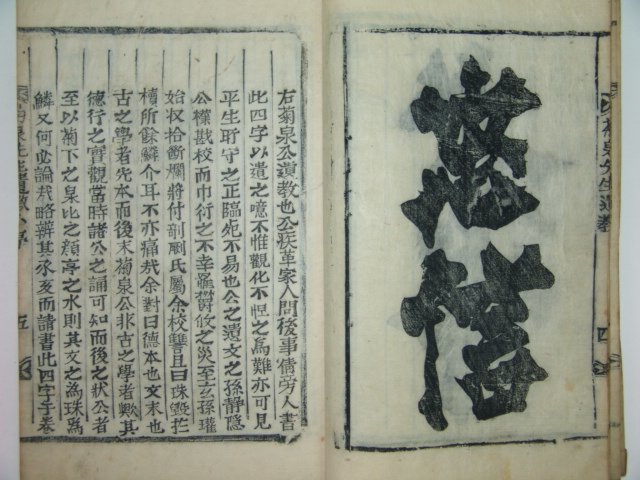 菊泉先生遺教
四
右菊泉公遺教也公疾革家人問後事倩旁人書
此四字以遺之噫不惟觀化不怛之為難亦可見
平生所守之正臨死不易也公之遺文之孫靜隱
公權戡校而巾衍之不幸罹鬱攸之災至玄孫瓘
始收拾斷爛將付剞劂氏屬余校讐且曰珠毀於
櫝所餘鱗介耳不亦痛哉余對曰德本也文末也
古之學者先本而後末菊泉公非古之學者歟其
德行之實觀當時諸公之誦可知而後之狀公者
至以菊下之泉比之顔亭之水則其文之為珠為
鱗又何必論哉略辨其豕亥而請書此四字于卷
五